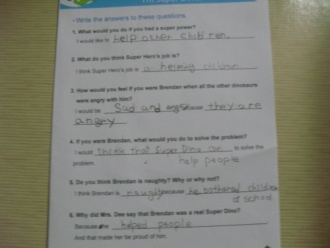 - Write the answers to these questions.
1. What would you do if you had a super power?
I would like to help other children.
2. What do you think Super Hero's job is?
I think Super Hero's job is a
3. How would you feel if you were Brendan when all the other dinosaurs
were angry with him?
I would be Sad and because they are
angry
4. If you were Brendan, what would you do to solve the problem?
I would think that Super Dino can to solve the
problem. help people
5. Do you think Brendan is naughty? Why or why not?
I think Brendan is naughty because he bothered children
of school
6. Why did Mrs. Dee say that Brendan was a real Super Dino?
Because he helped people
And that made her be proud of him.